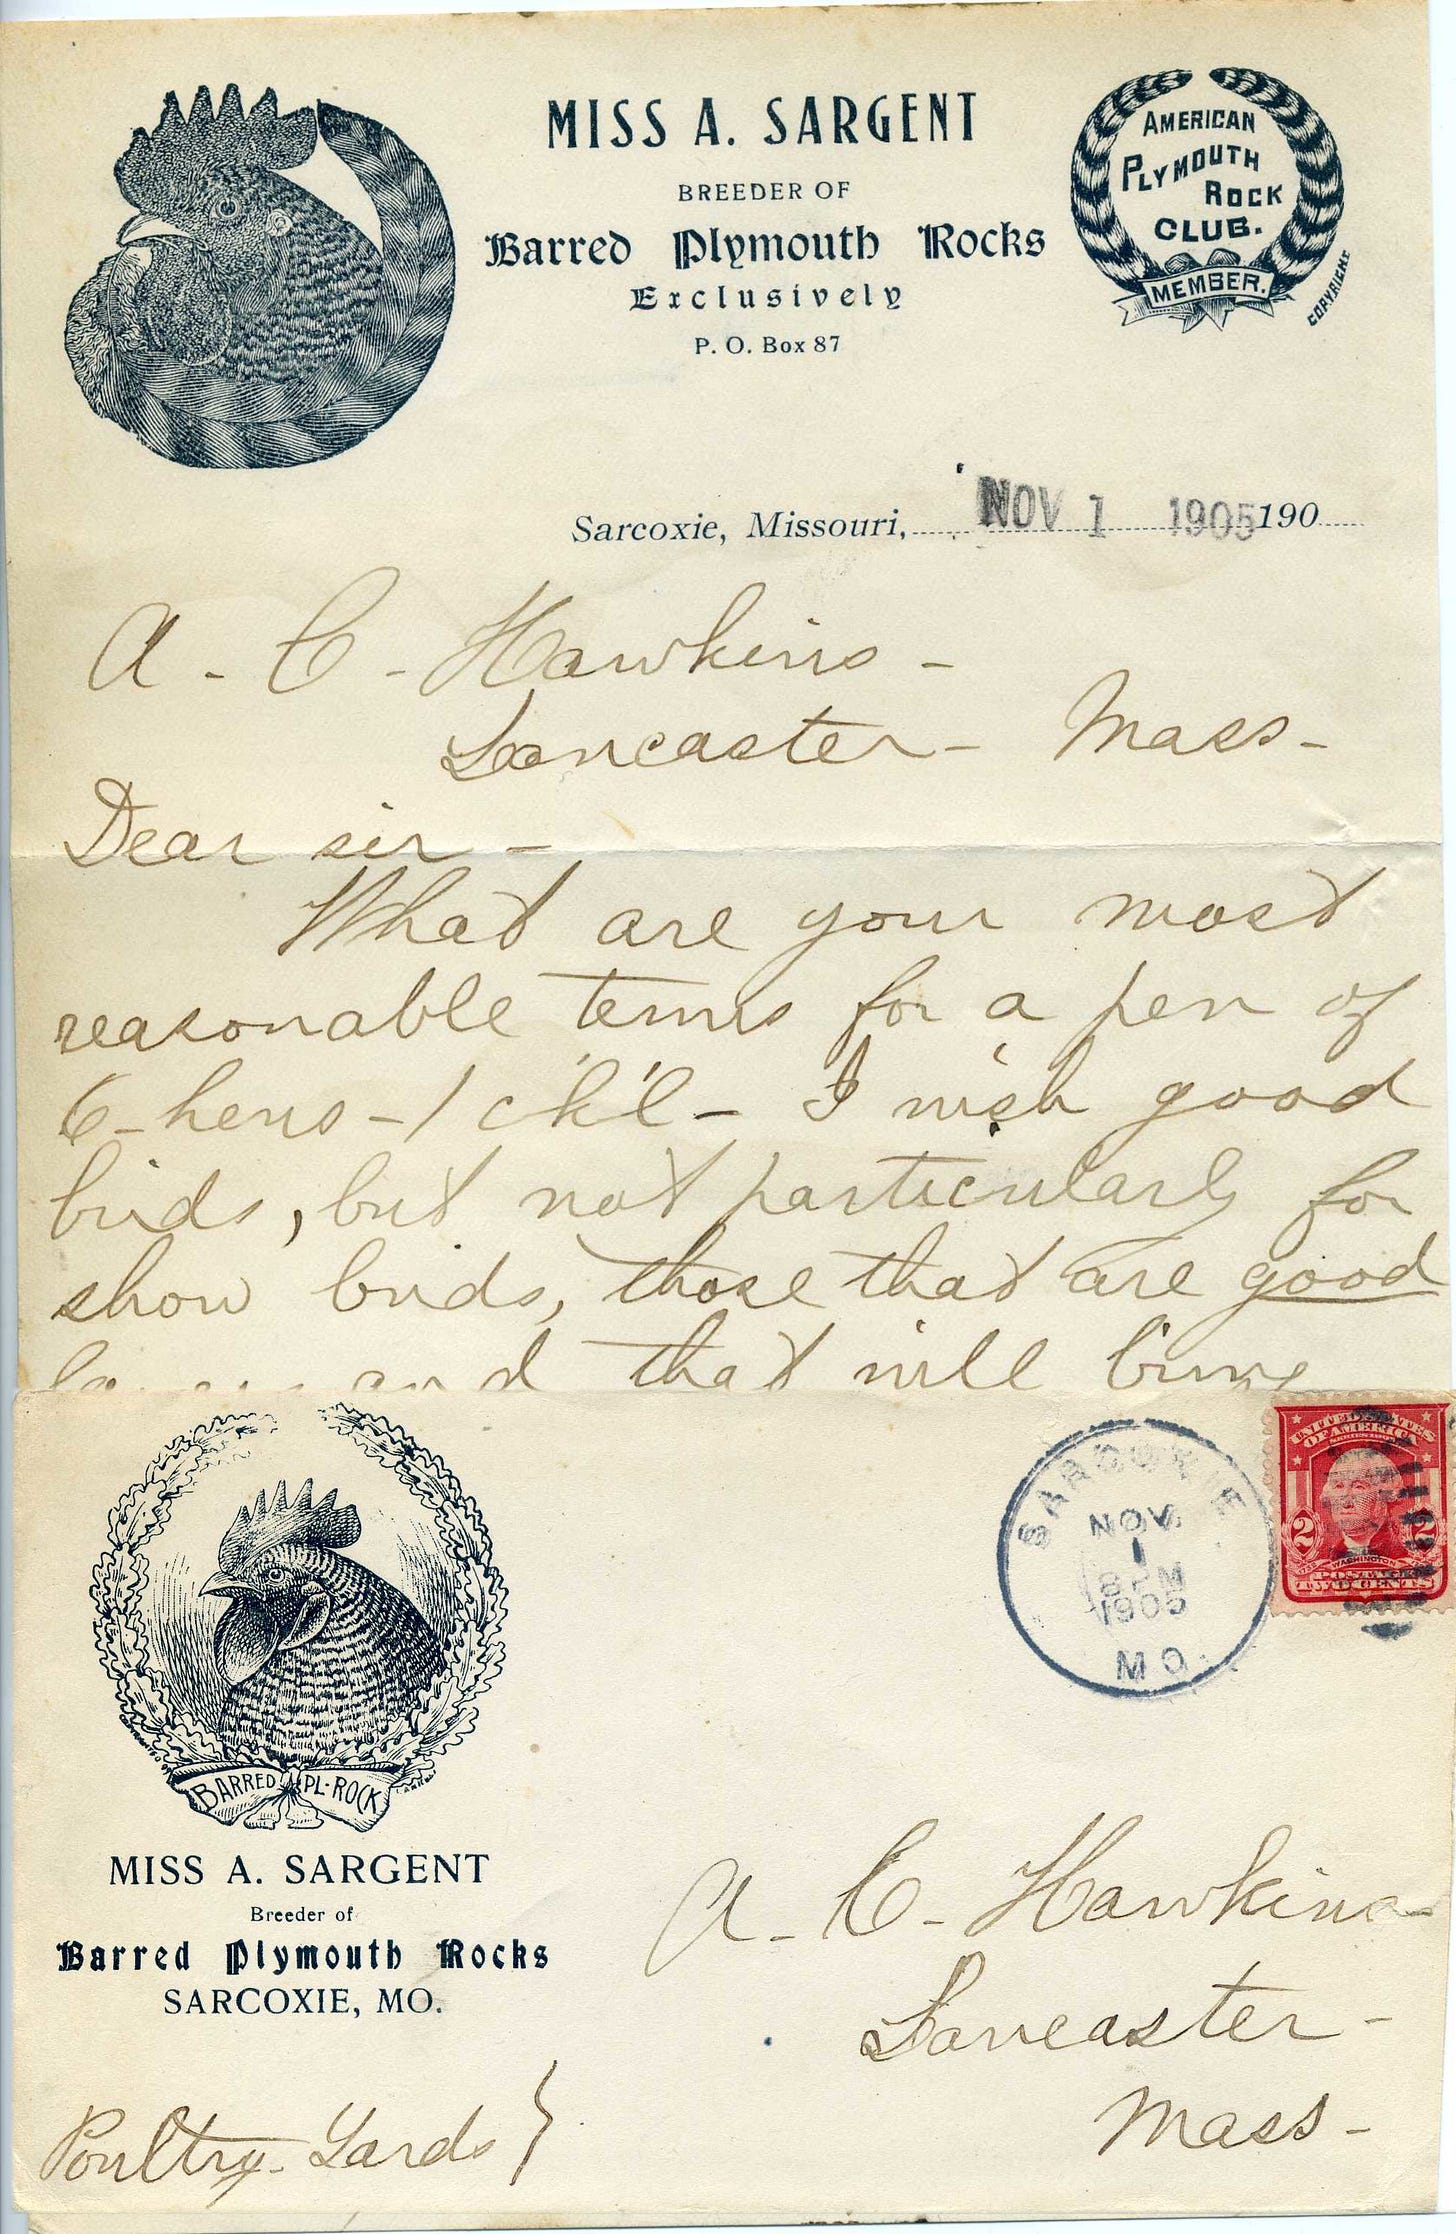 MISS A. SARGENT
BREEDER OF
Barred Plymouth Rocks
Exclusively
P. O. Box 87
AMERICAN
PLYMOUTH
ROCK
CLUB.
MEMBER.
COPYRIGHT
Sarcoxie, Missouri, NOV 1 1905 190
A - C - Hawkins -
Lancaster - Mass -
Dear sir -
What are your most
reasonable terms for a pen of
6 - hens - 1 ck'l - I wish good
birds, but not particularly for
show birds, those that are good
and that will bring
UNITED STATES
OF AMERICA
2 2
WASHINGTON
TWO CENTS
SARCOXIE
NOV
1
PM
1905
MO.
BARRED PL-ROCK
MISS A. SARGENT
Breeder of
Barred Plymouth Rocks
SARCOXIE, MO.
A - C - Hawkins -
Lancaster -
Mass -
Poultry - Yards }